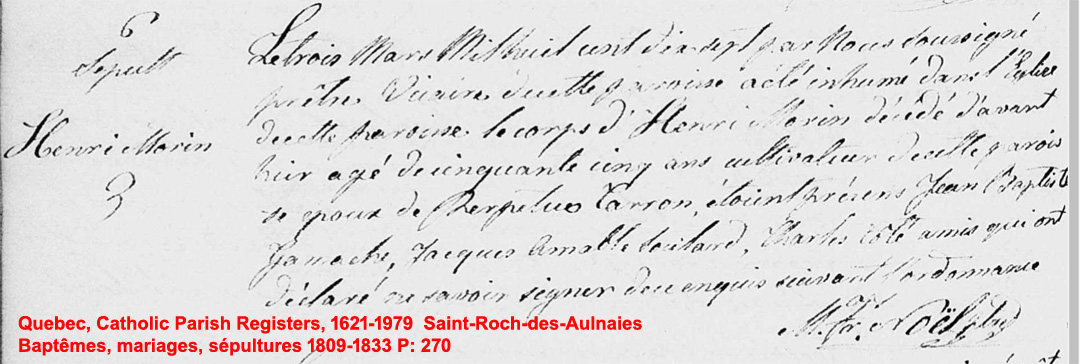 6
Sepult
Henri Morin
3
Le trois Mars Mil huit cent dix sept par Nous soussigné
prêtre Vicaire de cette paroisse a été inhumé dans l'Eglise
de cette paroisse le corps d'Henri Morin décédé d'avant
hier agé de cinquante cinq ans cultivateur de cette parois
se epoux de Perpetue Carron, étoient présens Jean Baptiste
Gamache, Jacques Amable Soulard, Charles Coté amis qui ont
déclaré ne savoir signer de ce enquis suivant l'ordonnance
M. Fx. Noël
Quebec, Catholic Parish Registers, 1621-1979 Saint-Roch-des-Aulnaies
Baptêmes, mariages, sépultures 1809-1833 P: 270